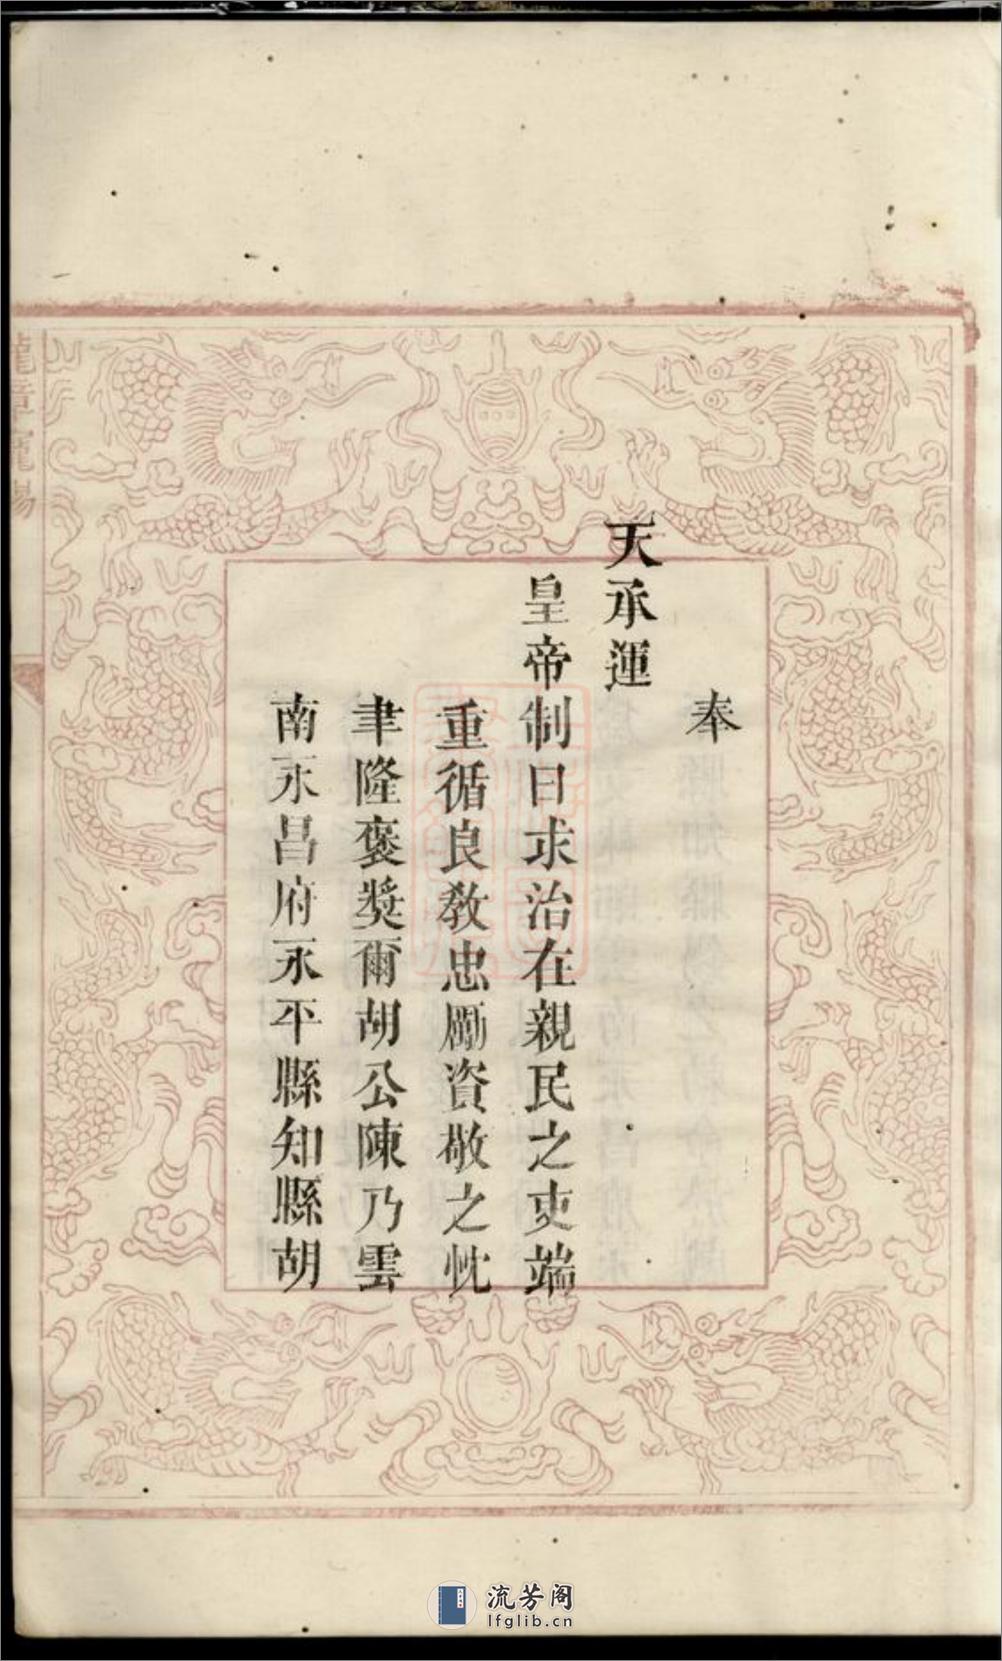 奉
天承運
皇帝制曰求治在親民之吏端
重循良教忠勵資敬之忱
聿隆褒奬爾胡公陳乃雲
南永昌府永平縣知縣胡
龍章寵錫
流芳阁
lfglib.cn